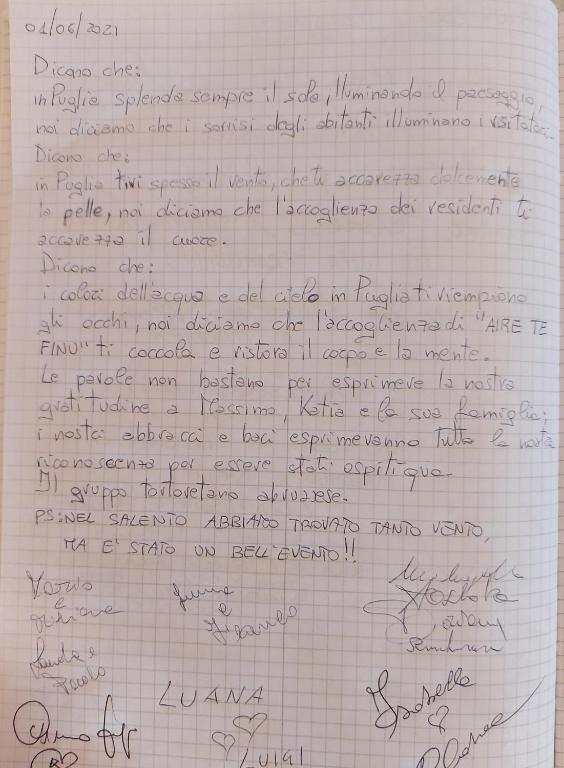 01/06/2021
Dicono che:
in Puglia splende sempre il sole, illuminando il paesaggio,
noi diciamo che i sorrisi degli abitanti illuminano i
Dicono che:
in Puglia tiri spesso il vento, che ti accarezza dolcemente
la pelle, noi diciamo che l'accoglienza dei residenti ti
accarezza il cuore.
Dicono che:
i colori dell'acqua e del cielo in Puglia ti riempiono
gli occhi, noi diciamo che l'accoglienza di "AIRE TE
FINU" ti coccola e ristora il corpo e la mente.
Le parole non bastano per esprimere la nostra
gratitudine a Massimo, Katia e la sua famiglia;
i nostri abbracci e baci esprimeranno tutta la nostra
riconoscenza per essere stati ospiti qua.
Il gruppo tortoretano abruzzese.
PS: NEL SALENTO ABBIAMO TROVATO TANTO VENTO,
MA E' STATO UN BELL'EVENTO!!
e
e
Sandra e
Paolo
LUANA
Isabella
LUIGI